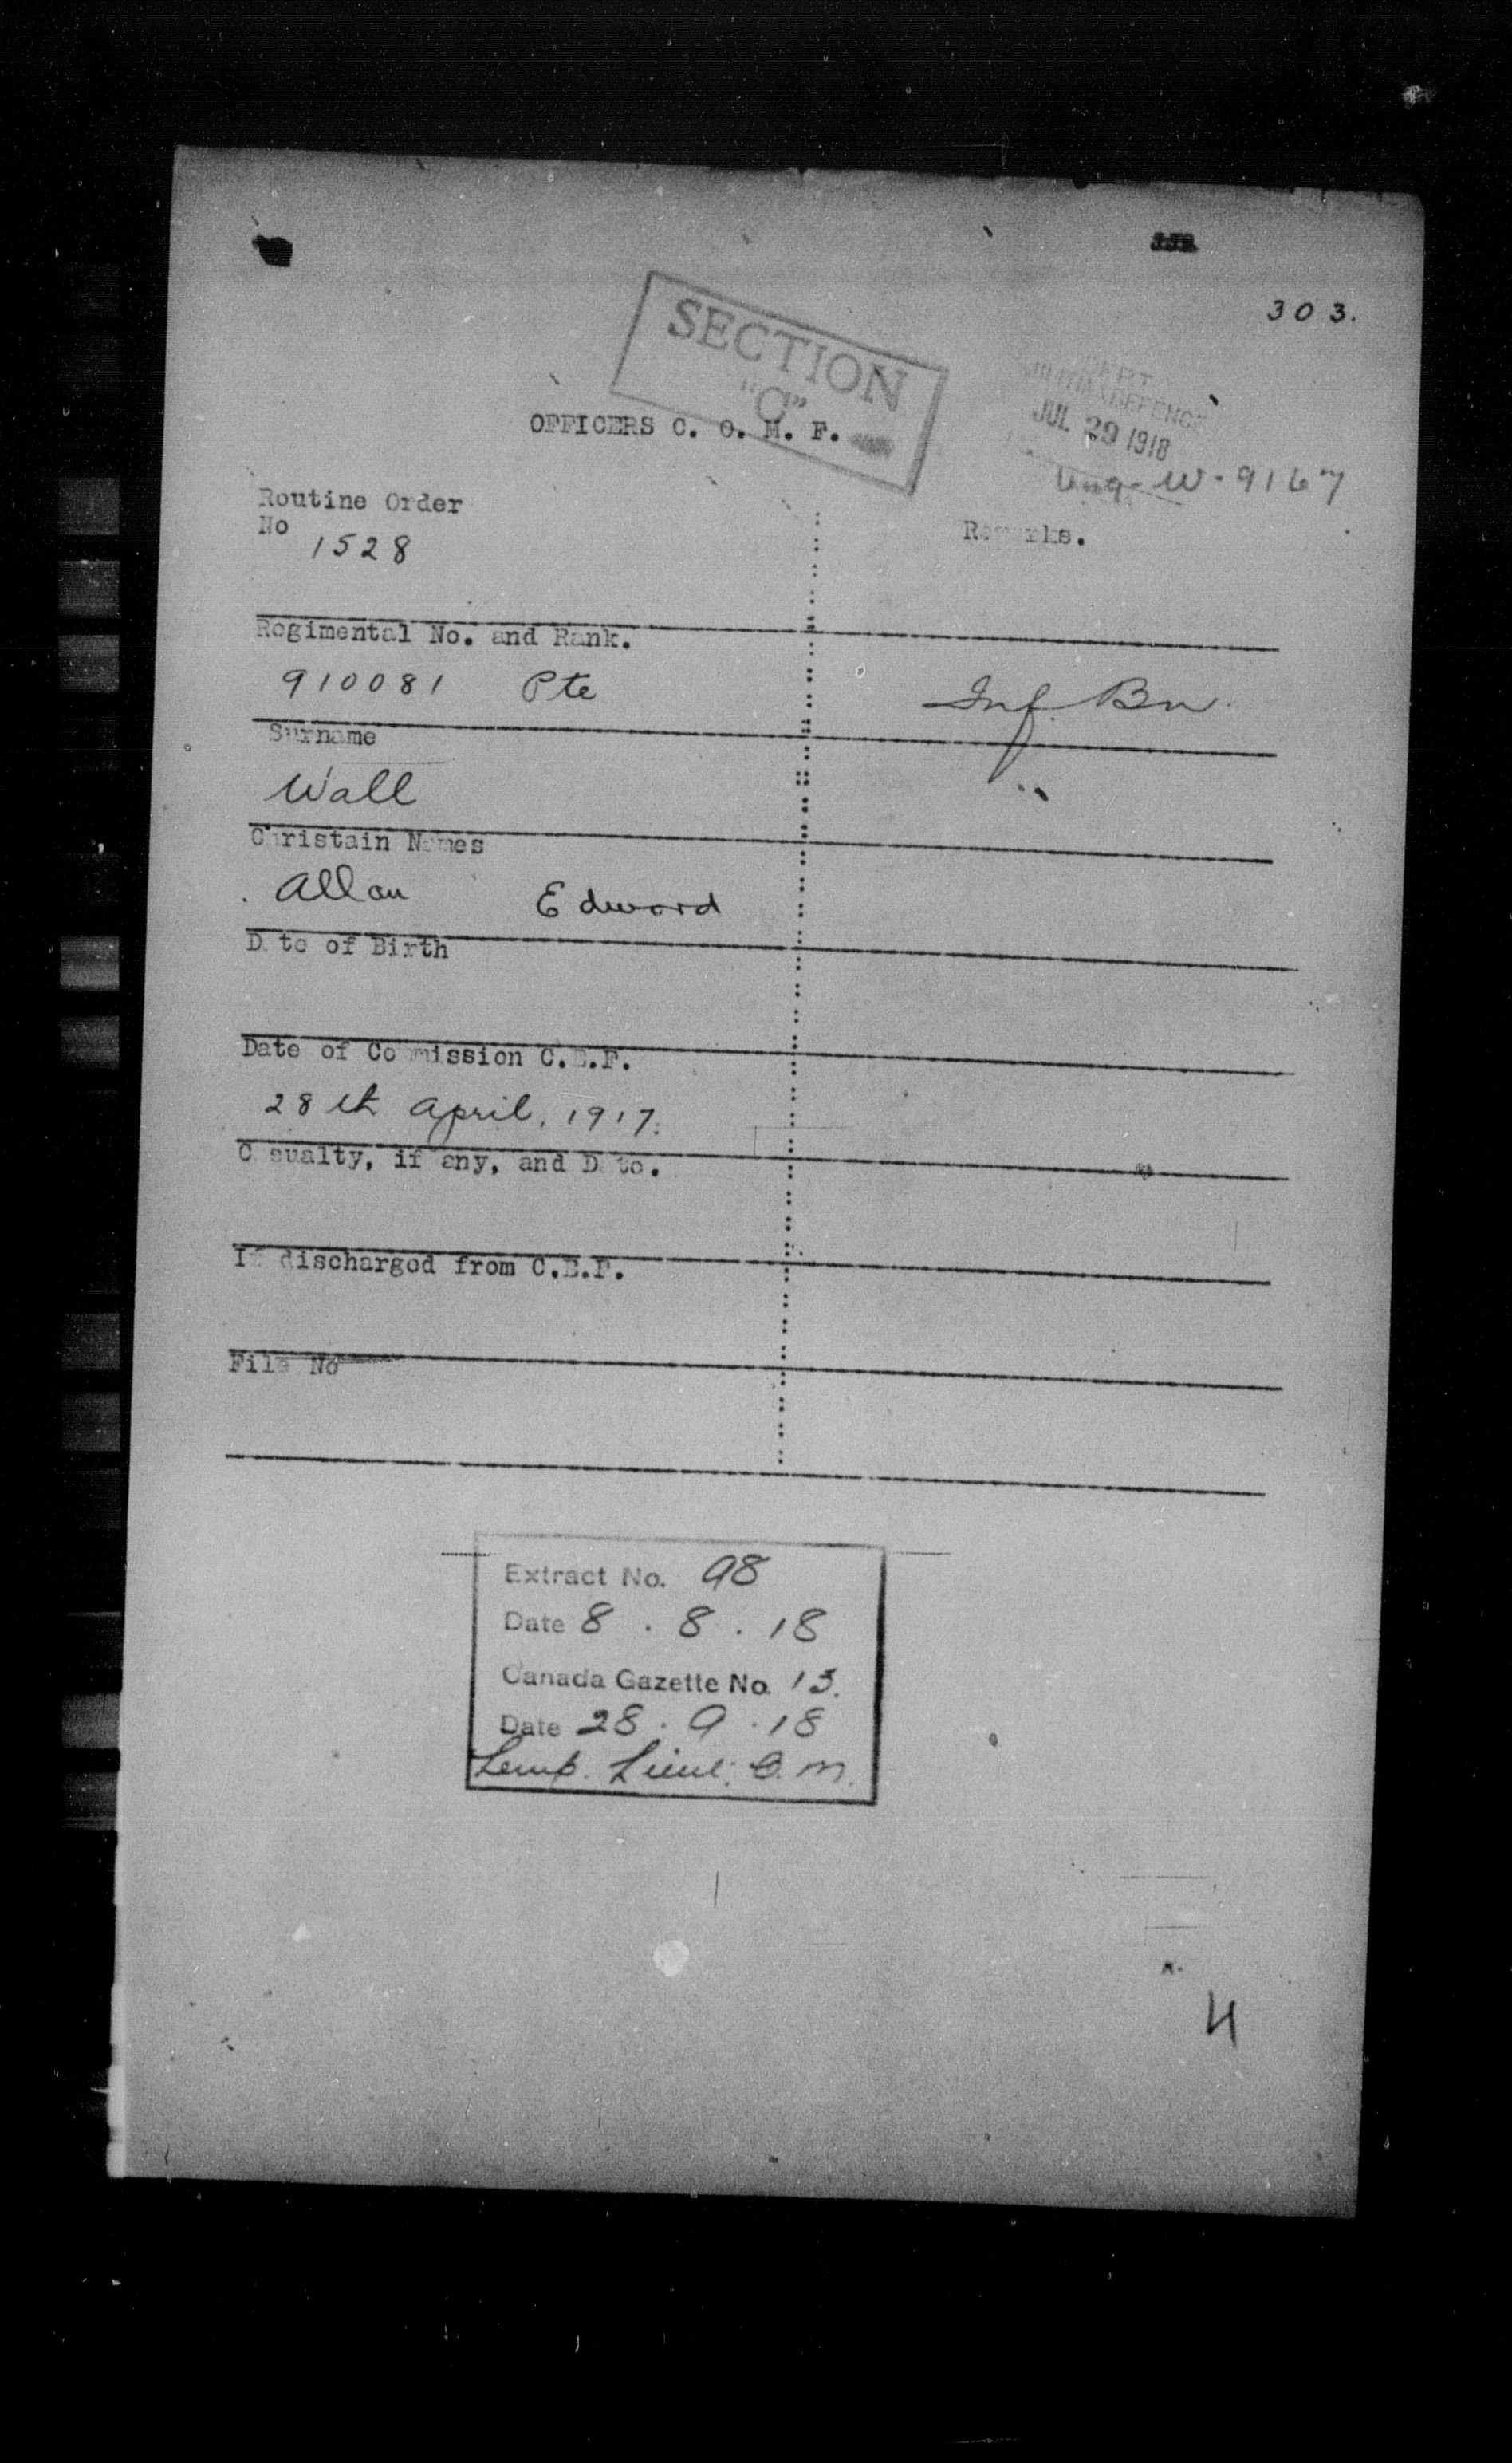 303.
SECTION
"C"
OFFICERS C. O. M. F.
DEPT
DEFENCE
JUL 29 1918
W-9167
Routine Order
No
1528
Remarks.
Regimental No. and Rank.
910081 Pte
Inf. Bn.
Surname
Wall
Christain Names
Allan Edward
Date of Birth
Date of Commission C.E.F.
28th April, 1917.
Casualty, if any, and Date.
If discharged from C.E.F.
File No
Extract No. 98
Date 8 . 8 . 18
Canada Gazette No. 13.
Date 28 . 9 . 18
Temp. Lieut. O. M.
4